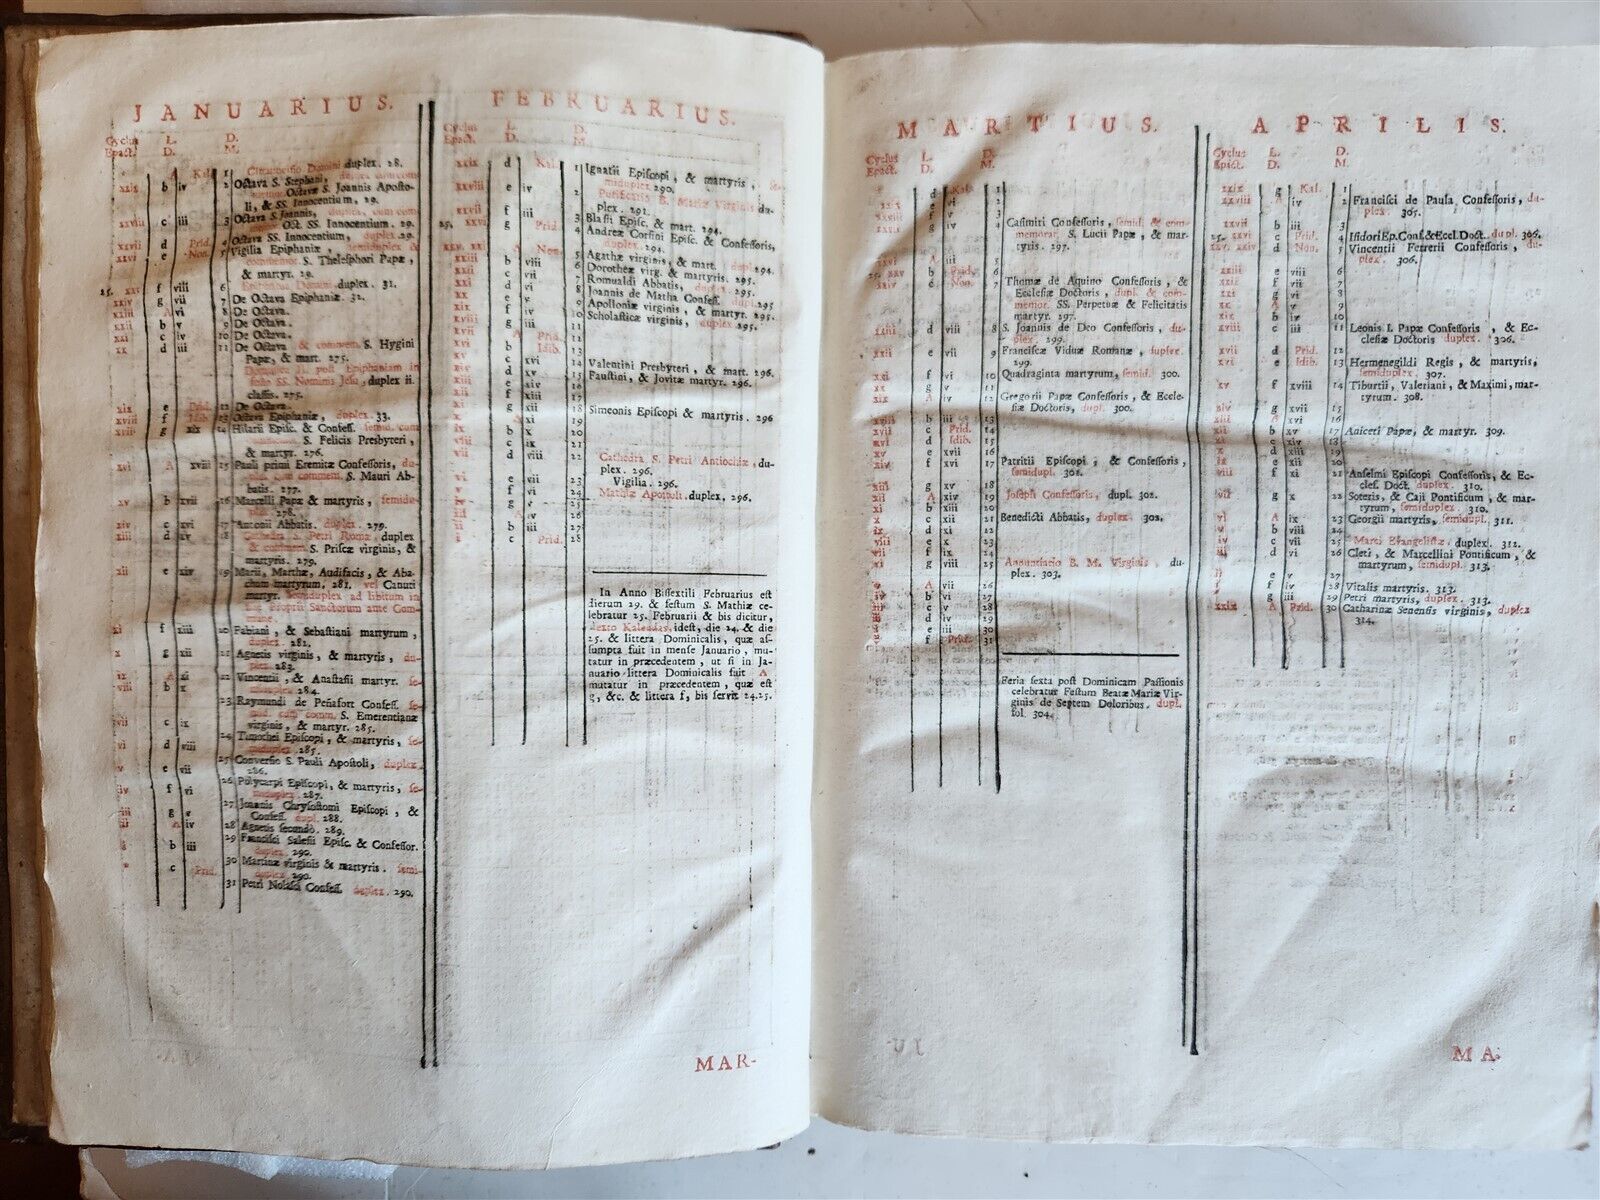 JANUARIUS.
Cyclus L. D.
Epact. D. M.
A Kal. 1 Circumcisio Domini duplex. 28.
xxix b iv 2 Octava S. Stephani,
Octava S. Joannis Aposto-
li, & SS. Innocentium, 29.
xxviii c iii 3 Octava S. Joannis, duplex, cum com.
Oct. SS. Innocentium. 29.
xxvii d Prid. 4 Octava SS. Innocentium, duplex. 29.
xxvi e Non. 5 Vigilia Epiphaniæ, semiduplex &
S. Thelesphori Papæ,
& martyr. 29.
25. xxv f viii 6 Epiphania Domini duplex. 31.
xxiv g vii 7 De Octava Epiphaniæ. 32.
xxiii A vi 8 De Octava.
xxii b v 9 De Octava.
xxi c iv 10 De Octava.
xx d iii 11 De Octava & commem. S. Hygini
Papæ, & mart. 275.
Dominica II. post Epiphaniam in
festo SS. Nominis Jesu, duplex ii.
classis. 275.
xix e Prid. 12 De Octava.
xviii f Idib. 13 Octava Epiphaniæ, duplex. 33.
xvii g xix 14 Hilarii Episc. & Confess. semid. cum
S. Felicis Presbyteri,
& martyr. 276.
xvi A xviii 15 Pauli primi Eremitæ Confessoris, du-
plex cum commem. S. Mauri Ab-
batis. 277.
xv b xvii 16 Marcelli Papæ & martyris, semidu-
plex. 278.
xiv c xvi 17 Antonii Abbatis. duplex. 279.
xiii d xv 18 Cathedra S. Petri Romæ, duplex
& commem. S. Priscæ virginis, &
martyris. 279.
xii e xiv 19 Marii, Marthæ, Audifacis, & Aba-
chum martyrum, 281. vel Canuti
martyr. semiduplex ad libitum in
fine Proprii Sanctorum ante Com-
mune.
xi f xiii 20 Fabiani, & Sebastiani martyrum,
duplex. 281.
x g xii 21 Agnetis virginis, & martyris, du-
plex. 283.
ix A xi 22 Vincentii, & Anastasii martyr. se-
miduplex. 284.
viii b x 23 Raymundi de Peñafort Confess. se-
mid. cum comm. S. Emerentianæ
virginis, & martyr. 285.
vii c ix 24 Timothei Episcopi, & martyris, se-
miduplex. 285.
vi d viii 25 Conversio S. Pauli Apostoli, duplex.
286.
v e vii 26 Polycarpi Episcopi, & martyris, se-
miduplex. 287.
iv f vi 27 Joannis Chrysostomi Episcopi, &
Confess. dupl. 288.
iii g v 28 Agnetis secundò. 289.
ii A iv 29 Francisci Salesii Episc. & Confessor.
duplex. 290.
b iii 30 Martinæ virginis & martyris. semi-
duplex. 290.
c Prid. 31 Petri Nolasci Confess. duplex. 290.
FEBRUARIUS.
Cyclus L. D.
Epact. D. M.
xxix d Kal. 1 Ignatii Episcopi, & martyris, se-
miduplex. 290.
xxviii e iv 2 Purificatio B. Mariæ Virginis du-
plex. 291.
xxvii f iii 3 Blasii Episc. & mart. 294.
25. xxvi g Prid. 4 Andreæ Corsini Episc. & Confessoris,
duplex. 294.
xxv. xxiv A Non. 5 Agathæ virginis, & mart. dupl. 294.
xxiii b viii 6 Dorotheæ virg. & martyris. 295.
xxii c vii 7 Romualdi Abbatis, duplex. 295.
xxi d vi 8 Joannis de Matha Confess. dupl. 295
xx e v 9 Apolloniæ virginis, & martyr. 295.
xix f iv 10 Scholasticæ virginis, duplex 295.
xviii g iii 11
xvii A Prid. 12
xvi b Idib. 13
xv c xvi 14 Valentini Presbyteri, & mart. 296.
xiv d xv 15 Faustini, & Jovitæ martyr. 296.
xiii e xiv 16
xii f xiii 17
xi g xii 18 Simeonis Episcopi & martyris. 296
x A xi 19
ix b x 20
viii c ix 21
vii d viii 22 Cathedra S. Petri Antiochiæ, du-
plex. 296.
vi e vii 23 Vigilia. 296.
v f vi 24 Mathiæ Apostoli. duplex, 296.
iv g v 25
iii A iv 26
ii b iii 27
i c Prid. 28
In Anno Bissextili Februarius est
dierum 29. & festum S. Mathiæ ce-
lebratur 25. Februarii & bis dicitur,
sexto Kalendas, idest, die 24. & die
25. & littera Dominicalis, quæ as-
sumpta fuit in mense Januario, mu-
tatur in præcedentem, ut si in Ja-
nuario littera Dominicalis fuit A
mutatur in præcedentem, quæ est
g, &c. & littera f, bis servit 24.25.
MAR-
MARTIUS.
Cyclus L. D.
Epact. D. M.
d Kal. 1
xxix e vi 2
xxviii f v 3
xxvii g iv 4 Casimiri Confessoris, semid. & com-
memorat. S. Lucii Papæ, & mar-
tyris. 297.
xxvi A iii 5
25. xxv b Prid. 6
xxiv c Non. 7 Thomæ de Aquino Confessoris, &
Ecclesiæ Doctoris, dupl. & com-
memor. SS. Perpetuæ & Felicitatis
martyr. 297.
xxiii d viii 8 S. Joannis de Deo Confessoris, du-
plex. 299.
xxii e vii 9 Franciscæ Viduæ Romanæ, duplex.
299.
xxi f vi 10 Quadraginta martyrum, semid. 300.
xx g v 11
xix A iv 12 Gregorii Papæ Confessoris, & Eccle-
siæ Doctoris, dupl. 300.
xviii b iii 13
xvii c Prid. 14
xvi d Idib. 15
xv e xvii 16
xiv f xvi 17 Patritii Episcopi, & Confessoris,
semidupl. 301.
xiii g xv 18
xii A xiv 19 Joseph Confessoris, dupl. 302.
xi b xiii 20
x c xii 21 Benedicti Abbatis, duplex. 302.
ix d xi 22
viii e x 23
vii f ix 24
vi g viii 25 Annuntiatio B. M. Virginis, du-
plex. 303.
v A vii 26
iv b vi 27
iii c v 28
ii d iv 29
i e iii 30
f Prid. 31
Feria sexta post Dominicam Passionis
celebratur Festum Beatæ Mariæ Vir-
ginis de Septem Doloribus. dupl.
fol. 304.
APRILIS.
Cyclus L. D.
Epact. D. M.
xxix g Kal. 1
xxviii A iv 2 Francisci de Paula, Confessoris, du-
plex. 305.
xxvii b iii 3
25. xxvi c Prid. 4 Isidori Ep. Conf. & Eccl. Doct. dupl. 306.
xxv. xxiv d Non. 5 Vincentii Ferrerii Confessoris, du-
plex. 306.
xxiii e viii 6
xxii f vii 7
xxi g vi 8
xx A v 9
xix b iv 10
xviii c iii 11 Leonis I. Papæ Confessoris, & Ec-
clesiæ Doctoris duplex. 306.
xvii d Prid. 12
xvi e Idib. 13 Hermenegildi Regis, & martyris,
semiduplex. 307.
xv f xviii 14 Tiburtii, Valeriani, & Maximi, mar-
tyrum. 308.
xiv g xvii 15
xiii A xvi 16
xii b xv 17 Aniceti Papæ, & martyr. 309.
xi c xiv 18
x d xiii 19
ix e xii 20
viii f xi 21 Anselmi Episcopi Confessoris, & Ec-
cles. Doct. duplex. 310.
vii g x 22 Soteris, & Caji Pontificum, & mar-
tyrum, semiduplex. 310.
vi A ix 23 Georgii martyris, semidupl. 311.
v b viii 24
iv c vii 25 Marci Evangelistæ, duplex. 312.
iii d vi 26 Cleti, & Marcellini Pontificum, &
martyrum, semidupl. 313.
ii e v 27
i f iv 28 Vitalis martyris. 313.
g iii 29 Petri martyris, duplex. 313.
xxix A Prid. 30 Catharinæ Senensis virginis, duplex
314.
MA-